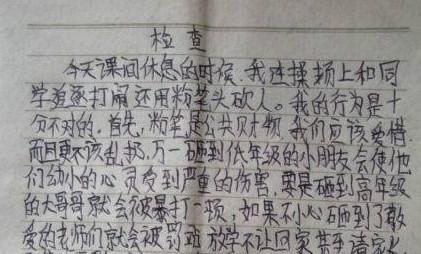 检查
今天课间休息的时候,我连操场上和同
学追逐打闹还用粉笔头砍人。我的行为是十
分不对的,首先,粉笔是公共财物,我们应该爱惜
而且更不该乱扔,万一砸到低年级的小朋友会使他
们幼小的心灵受到严重的伤害,要是砸到高年级
的大哥哥就会被暴打一顿,如果不小心砸到了敬
爱的老师们就会被罚站放学不让回家甚至请家长